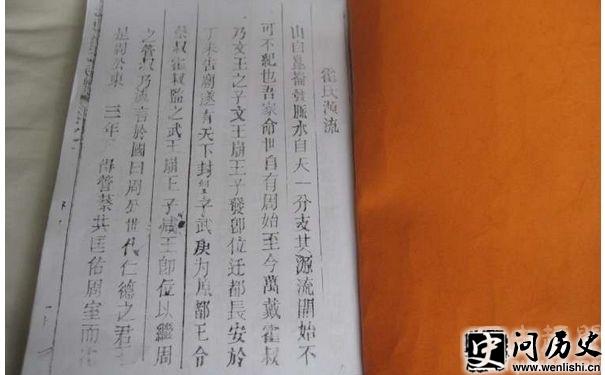 霍氏源流
山自崑崙發脈水自天一分支其源流開始不
可不紀也吾家命世自有周始至今萬戴霍叔
乃文王之子文王崩王子發即位迁都長安於
丁未告廟遂有天下封 子武庚为 都王命
蔡叔霍叔監之武王崩王子成王即位以繼周
之管叔乃流言於國曰周公 世代仁德之君
是周公東 三年 得管蔡共匡佑周室而
史问历史
www.wenlishi.cn